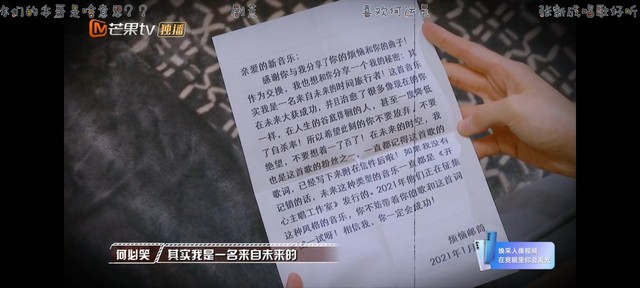 张新成唱歌好听
芒果TV 独播
亲爱的新音乐：
感谢你与我分享了你的烦恼和你的曲子！
作为交换，我也想和你分享一个我的秘密：其
实我是一名来自未来的时间旅行者！这首音乐
在未来大获成功，并且治愈了很多像现在的你
一样，在人生的谷底徘徊的人，甚至一度降低
了自杀率！所以希望此刻的你不要放弃，不要
绝望，不要想着一了百了！在未来的时空，我
也是这首歌的粉丝之一，一直都记得这首歌的
歌词，已经写下来附在信件后啦！如果我没有
记错的话，未来这种类型的音乐一直都是《开
心主唱工作室》发行的。2021年他们正在征集
这种风格的音乐，你不妨带着你的歌和这首词
一试呀！相信我，你一定会成功！
烦恼邮筒
2021年1月
何必笑 其实我是一名来自未来的
焕采人像视频
在我眼里你会发光